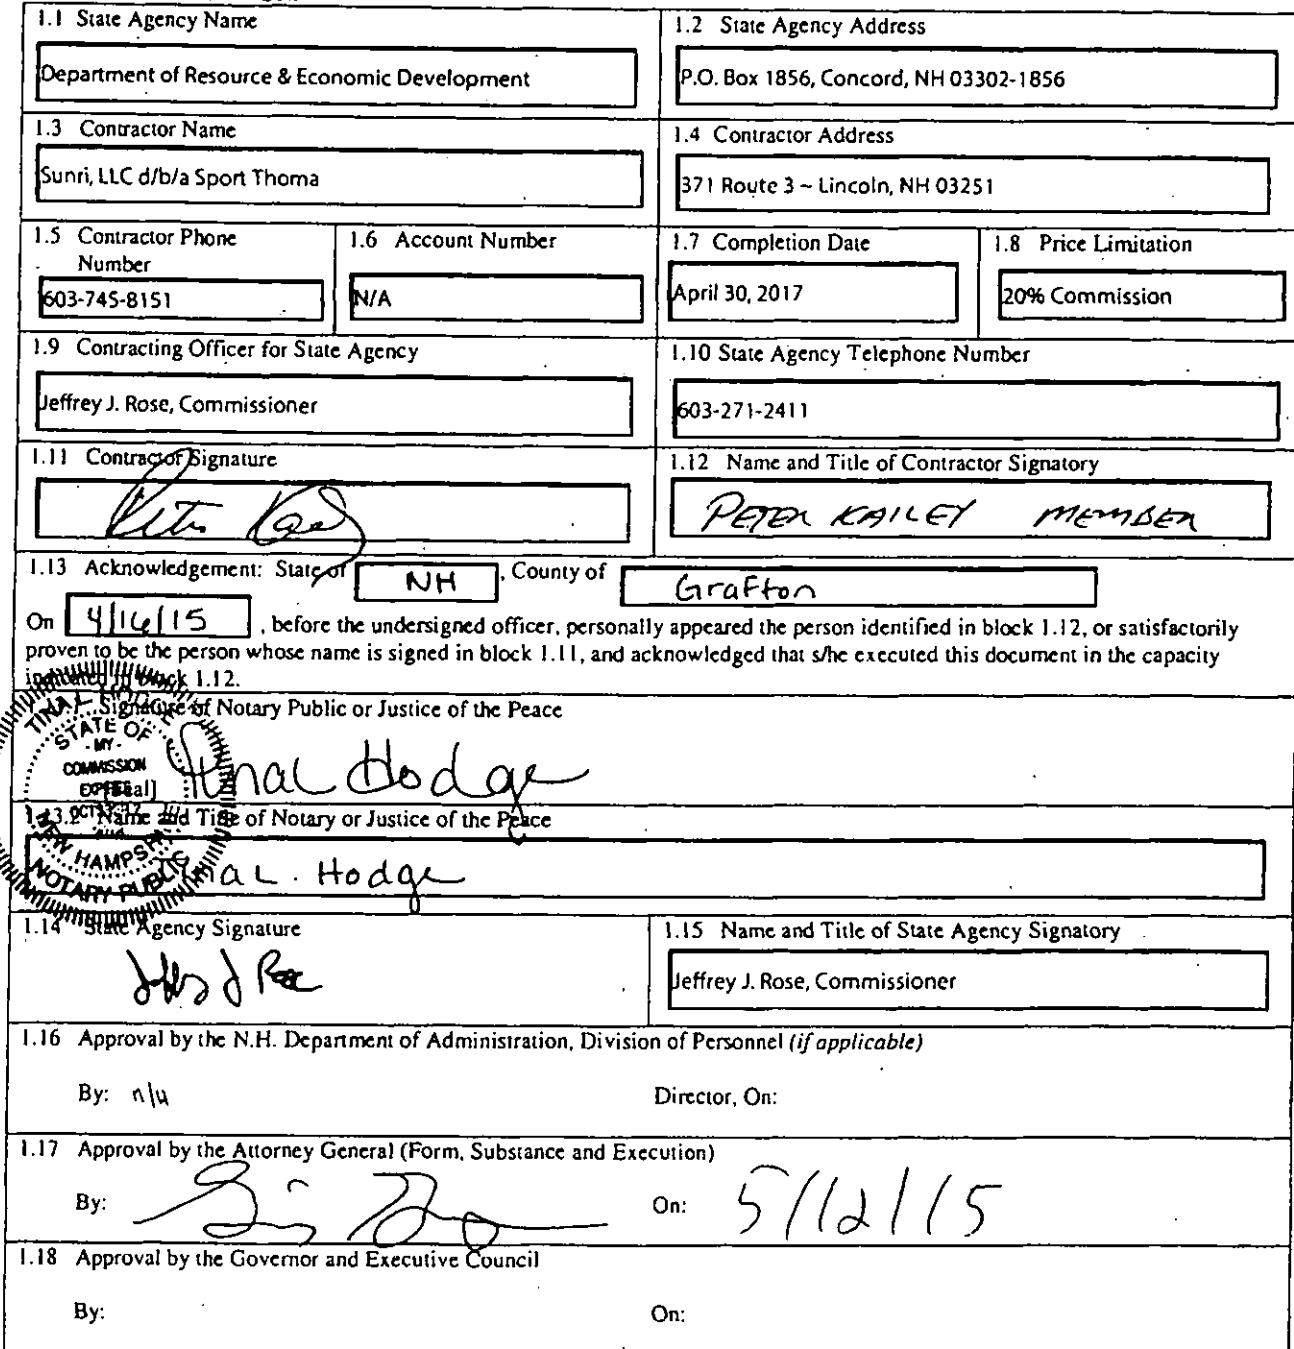 1.1 State Agency Name
Department of Resource & Economic Development
1.2 State Agency Address
P.O. Box 1856, Concord, NH 03302-1856
1.3 Contractor Name
Sunri, LLC d/b/a Sport Thoma
1.4 Contractor Address
371 Route 3 ~ Lincoln, NH 03251
1.5 Contractor Phone
Number
603-745-8151
1.6 Account Number
N/A
1.7 Completion Date
April 30, 2017
1.8 Price Limitation
20% Commission
1.9 Contracting Officer for State Agency
Jeffrey J. Rose, Commissioner
1.10 State Agency Telephone Number
603-271-2411
1.11 Contractor Signature
1.12 Name and Title of Contractor Signatory
PETER KAILEY MEMBER
1.13 Acknowledgement: State of NH, County of Grafton
On 4/16/15, before the undersigned officer, personally appeared the person identified in block 1.12, or satisfactorily
proven to be the person whose name is signed in block 1.11, and acknowledged that s/he executed this document in the capacity
indicated in block 1.12.
Signature of Notary Public or Justice of the Peace
Tina L Hodge
TINA L. HODGE
STATE OF
MY
COMMISSION
EXPIRES
NEW HAMPSHIRE
NOTARY PUBLIC
[Seal]
1.13.2 Name and Title of Notary or Justice of the Peace
Tina L. Hodge
1.14 State Agency Signature
1.15 Name and Title of State Agency Signatory
Jeffrey J. Rose, Commissioner
1.16 Approval by the N.H. Department of Administration, Division of Personnel (if applicable)
By: n/a
Director, On:
1.17 Approval by the Attorney General (Form, Substance and Execution)
By:
On: 5/12/15
1.18 Approval by the Governor and Executive Council
By:
On: